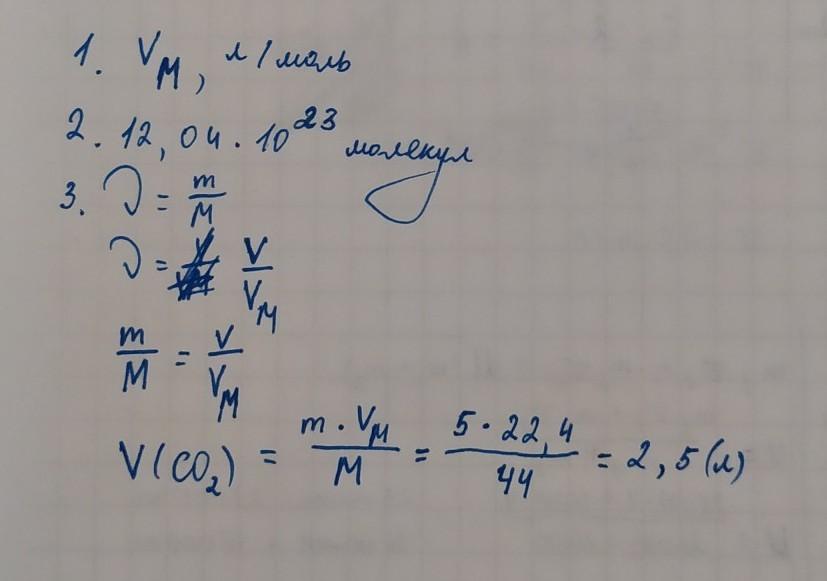 1. V_M, л/моль
2. 12,04 · 10^23 молекул
3. ν = m/M
ν = V/V_M
m/M = V/V_M
V(CO₂) = m · V_M / M = 5 · 22,4 / 44 = 2,5 (л)